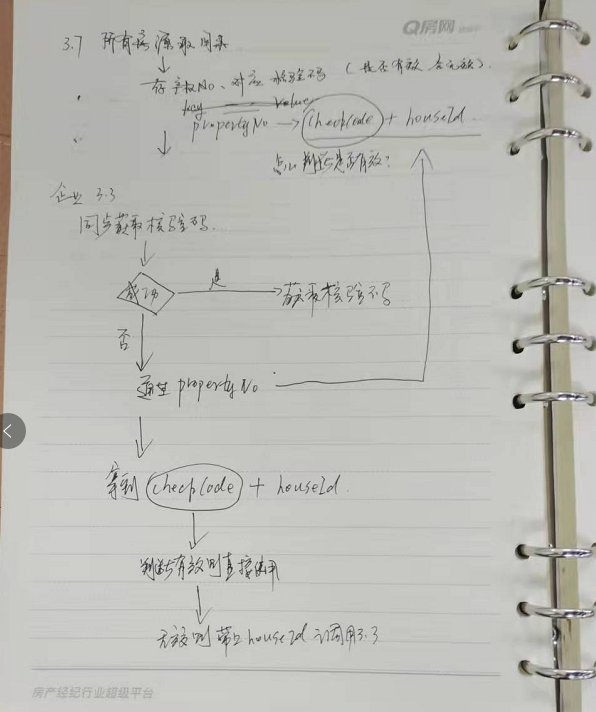 Q房网
3.7 所有房源取回来
存 产权No、对应 核验码 (是否有效 含无效).
key value
propertyNo → checkcode + houseId
怎么判断是否有效?
企业 3.3
同步获取核验码.
成功
是
获取核验码
否
通过 propertyNo
拿到 checkCode + houseId.
判断有效则直接使用
无效则 带上 houseId 调用3.3
房产经纪行业超级平台